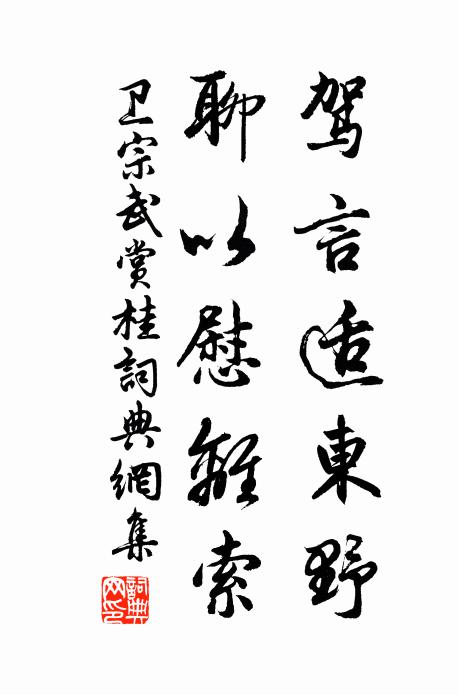 驾言适東野
聊以慰離索
卫宗武赏桂詞典網集
詞典网印